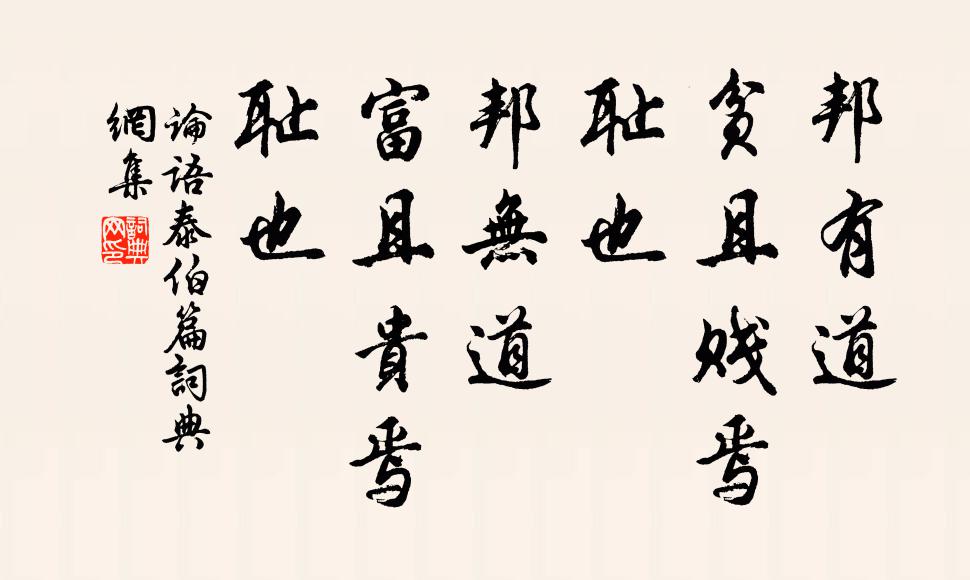 邦有道
貧且賤焉
耻也
邦無道
富且貴焉
耻也
論語泰伯篇詞典
網集
詞典
网印